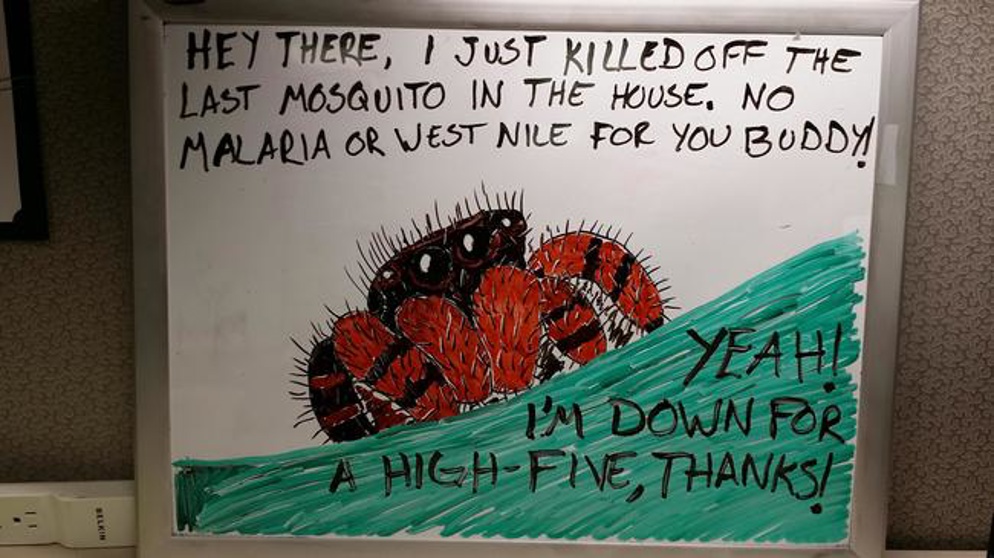 HEY THERE, I JUST KILLED OFF THE
LAST MOSQUITO IN THE HOUSE. NO
MALARIA OR WEST NILE FOR YOU BUDDY!
YEAH!
I'M DOWN FOR
A HIGH-FIVE, THANKS!
BELKIN